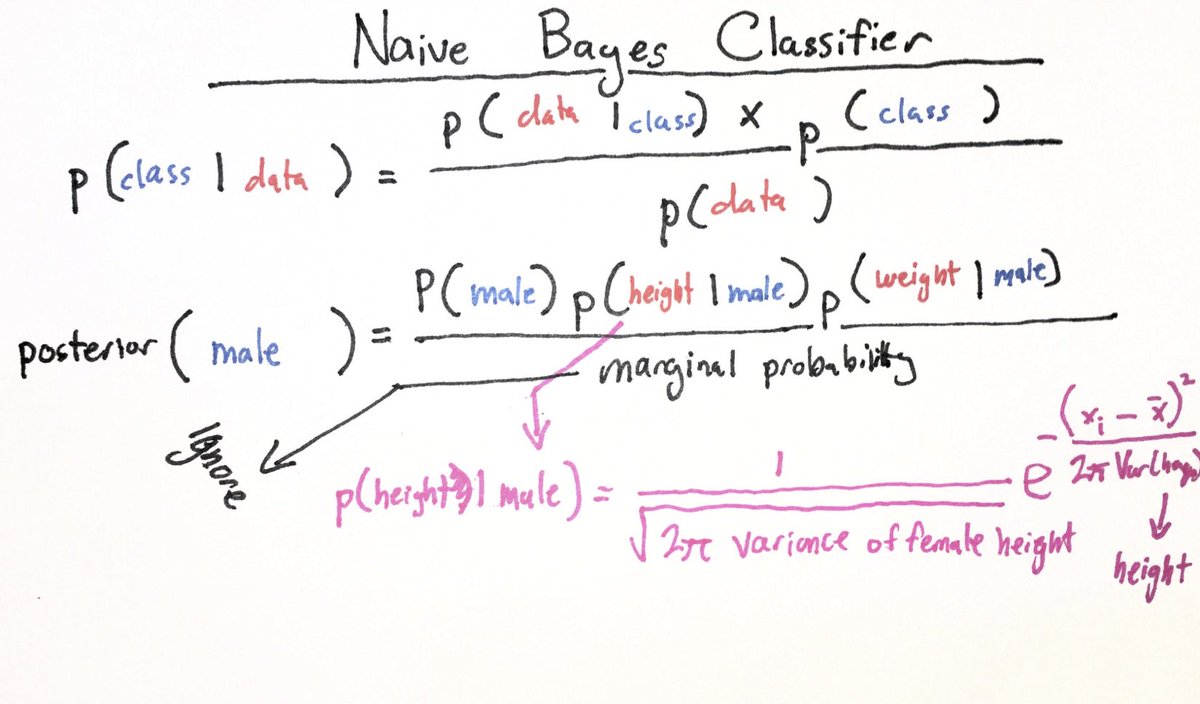 Naive Bayes Classifier
p(class | data) = p(data | class) x p(class)
p(data)
posterior(male) = P(male) p(height | male) p(weight | male)
marginal probability
Ignore
p(height | male) = 1
√2π variance of female height
e -(xᵢ - x̄)²
2π Var(
height